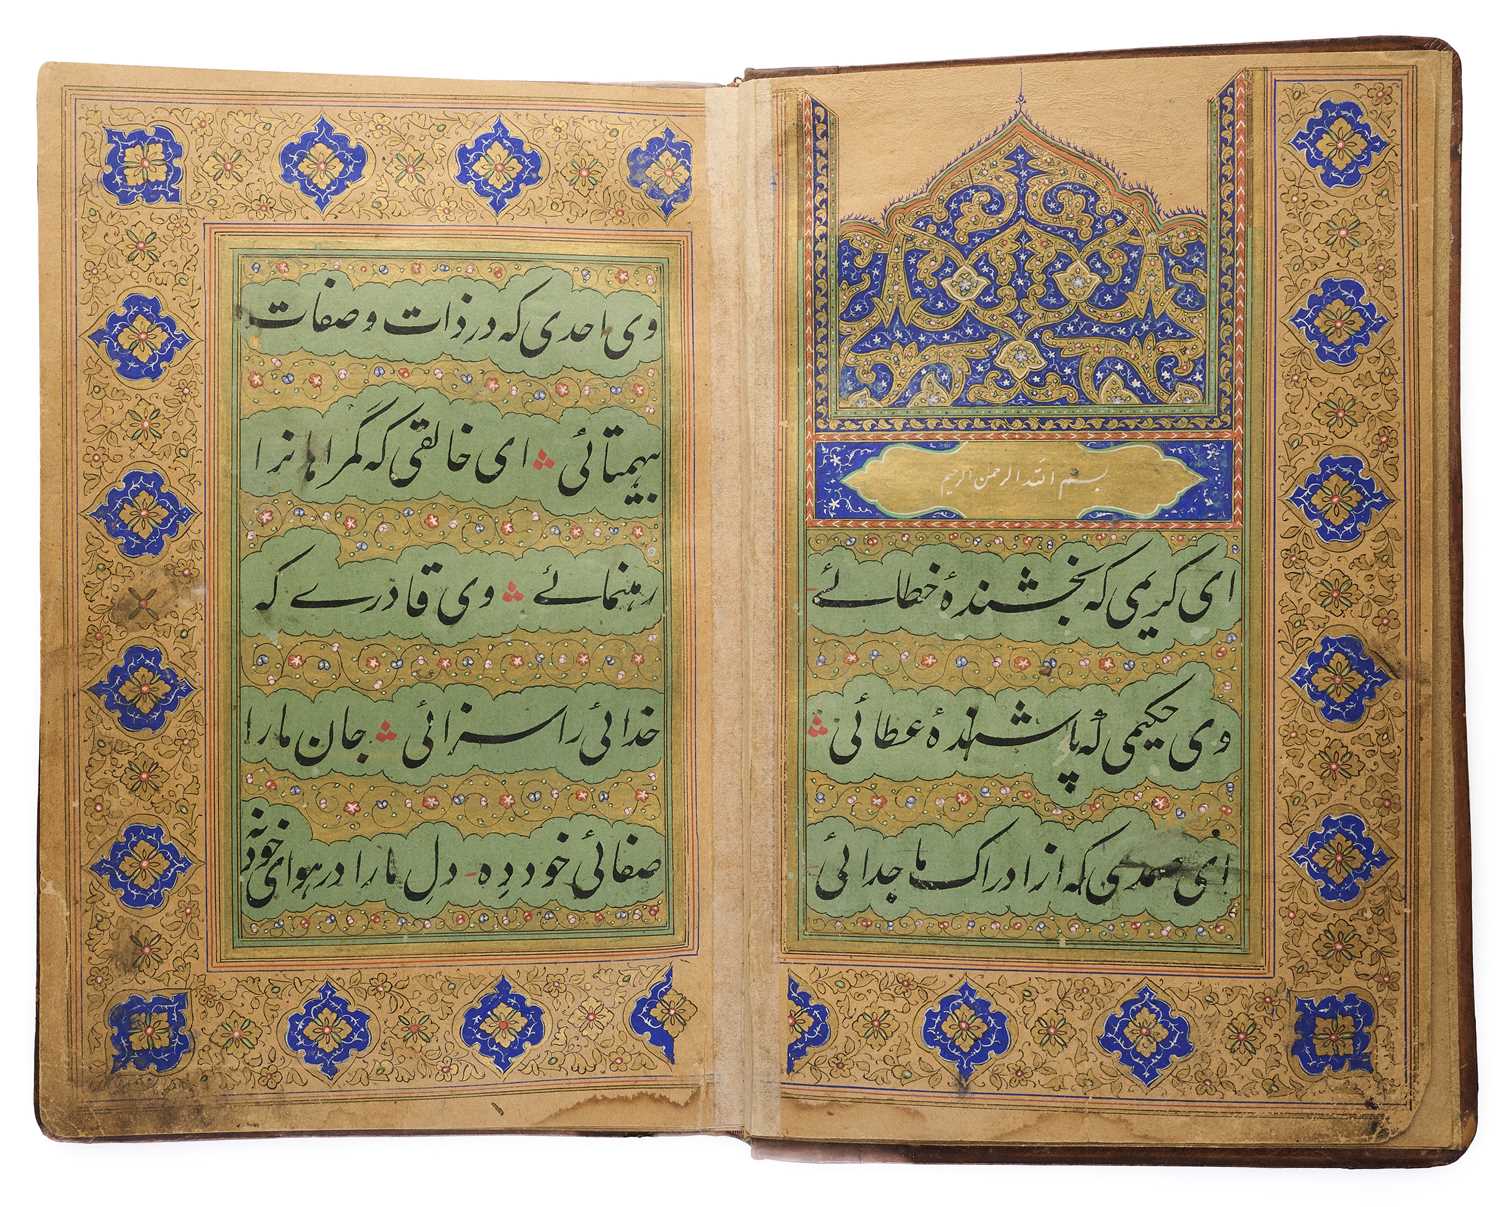 بسم الله الرحمن الرحیم
ای کریمی که بخشندهٔ خطائے
وی حکیمی که پوشندهٔ عطائی
ای صمدی که از ادراک ما جدائی
وی احدی که در ذات و صفات
بیهمتائی ای خالقی که گمراهانرا
رهنمائے وی قادرے که
خدائی را سزائی جان ما را
صفائی خود ده دل ما را در هوای خود نه